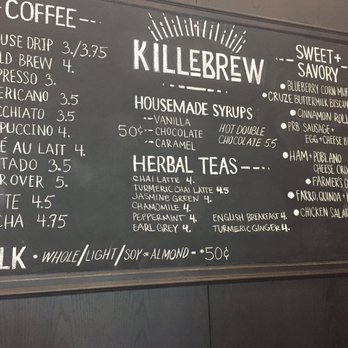 COFFEE
USE DRIP 3./3.75
LD BREW 4.
PRESSO 3.
ERICANO 3.5
CCHIATO 3.5
PUCCINO 4.
É AU LAIT 4.
TADO 3.5
ROVER 5.
TTE 4.5
CHA 4.75
LK • WHOLE/LIGHT/SOY OR ALMOND - •50¢
KILLEBREW
HOUSEMADE SYRUPS
50¢
VANILLA
CHOCOLATE
CARAMEL
HOT DOUBLE
CHOCOLATE 5.5
HERBAL TEAS
CHAI LATTE 4.
TURMERIC CHAI LATTE 4.5
JASMINE GREEN 4.
CHAMOMILE 4.
PEPPERMINT 4.
EARL GREY 4.
ENGLISH BREAKFAST 4.
TURMERIC GINGER 4.
SWEET +
SAVORY
BLUEBERRY CORN MUF
CRUZE BUTTERMILK BISCUI
CINNAMON ROLL
PRB SAUSAGE +
EGG + CHEESE B
HAM +
CHEESE CRO
FARMER'S
FARRO, QUINOA +
CHICKEN SALA